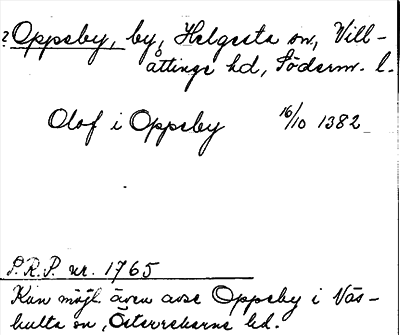 ? Oppeby, by, Helgesta sn, Vill-
åttinge hd, Söderm. l.
Olof i Oppeby 16/10 1382
S.R.P. nr. 1765
Kan möjl. även avse Oppeby i Väs-
hulta sn, Österrekarne hd.